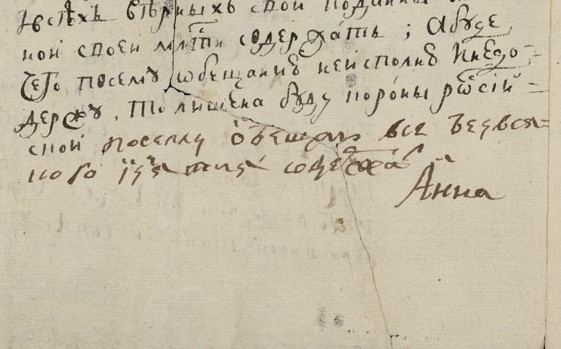 ївсѣхъ вѣрныхъ свои поданны
ной своеи млсти содержать ; А буде
чего посему ѡбещанию неисполню инедо=
держу , то лишена буду короны росїи=
скои посему обещаюс все безвся=
кого изятия содержат
Анна